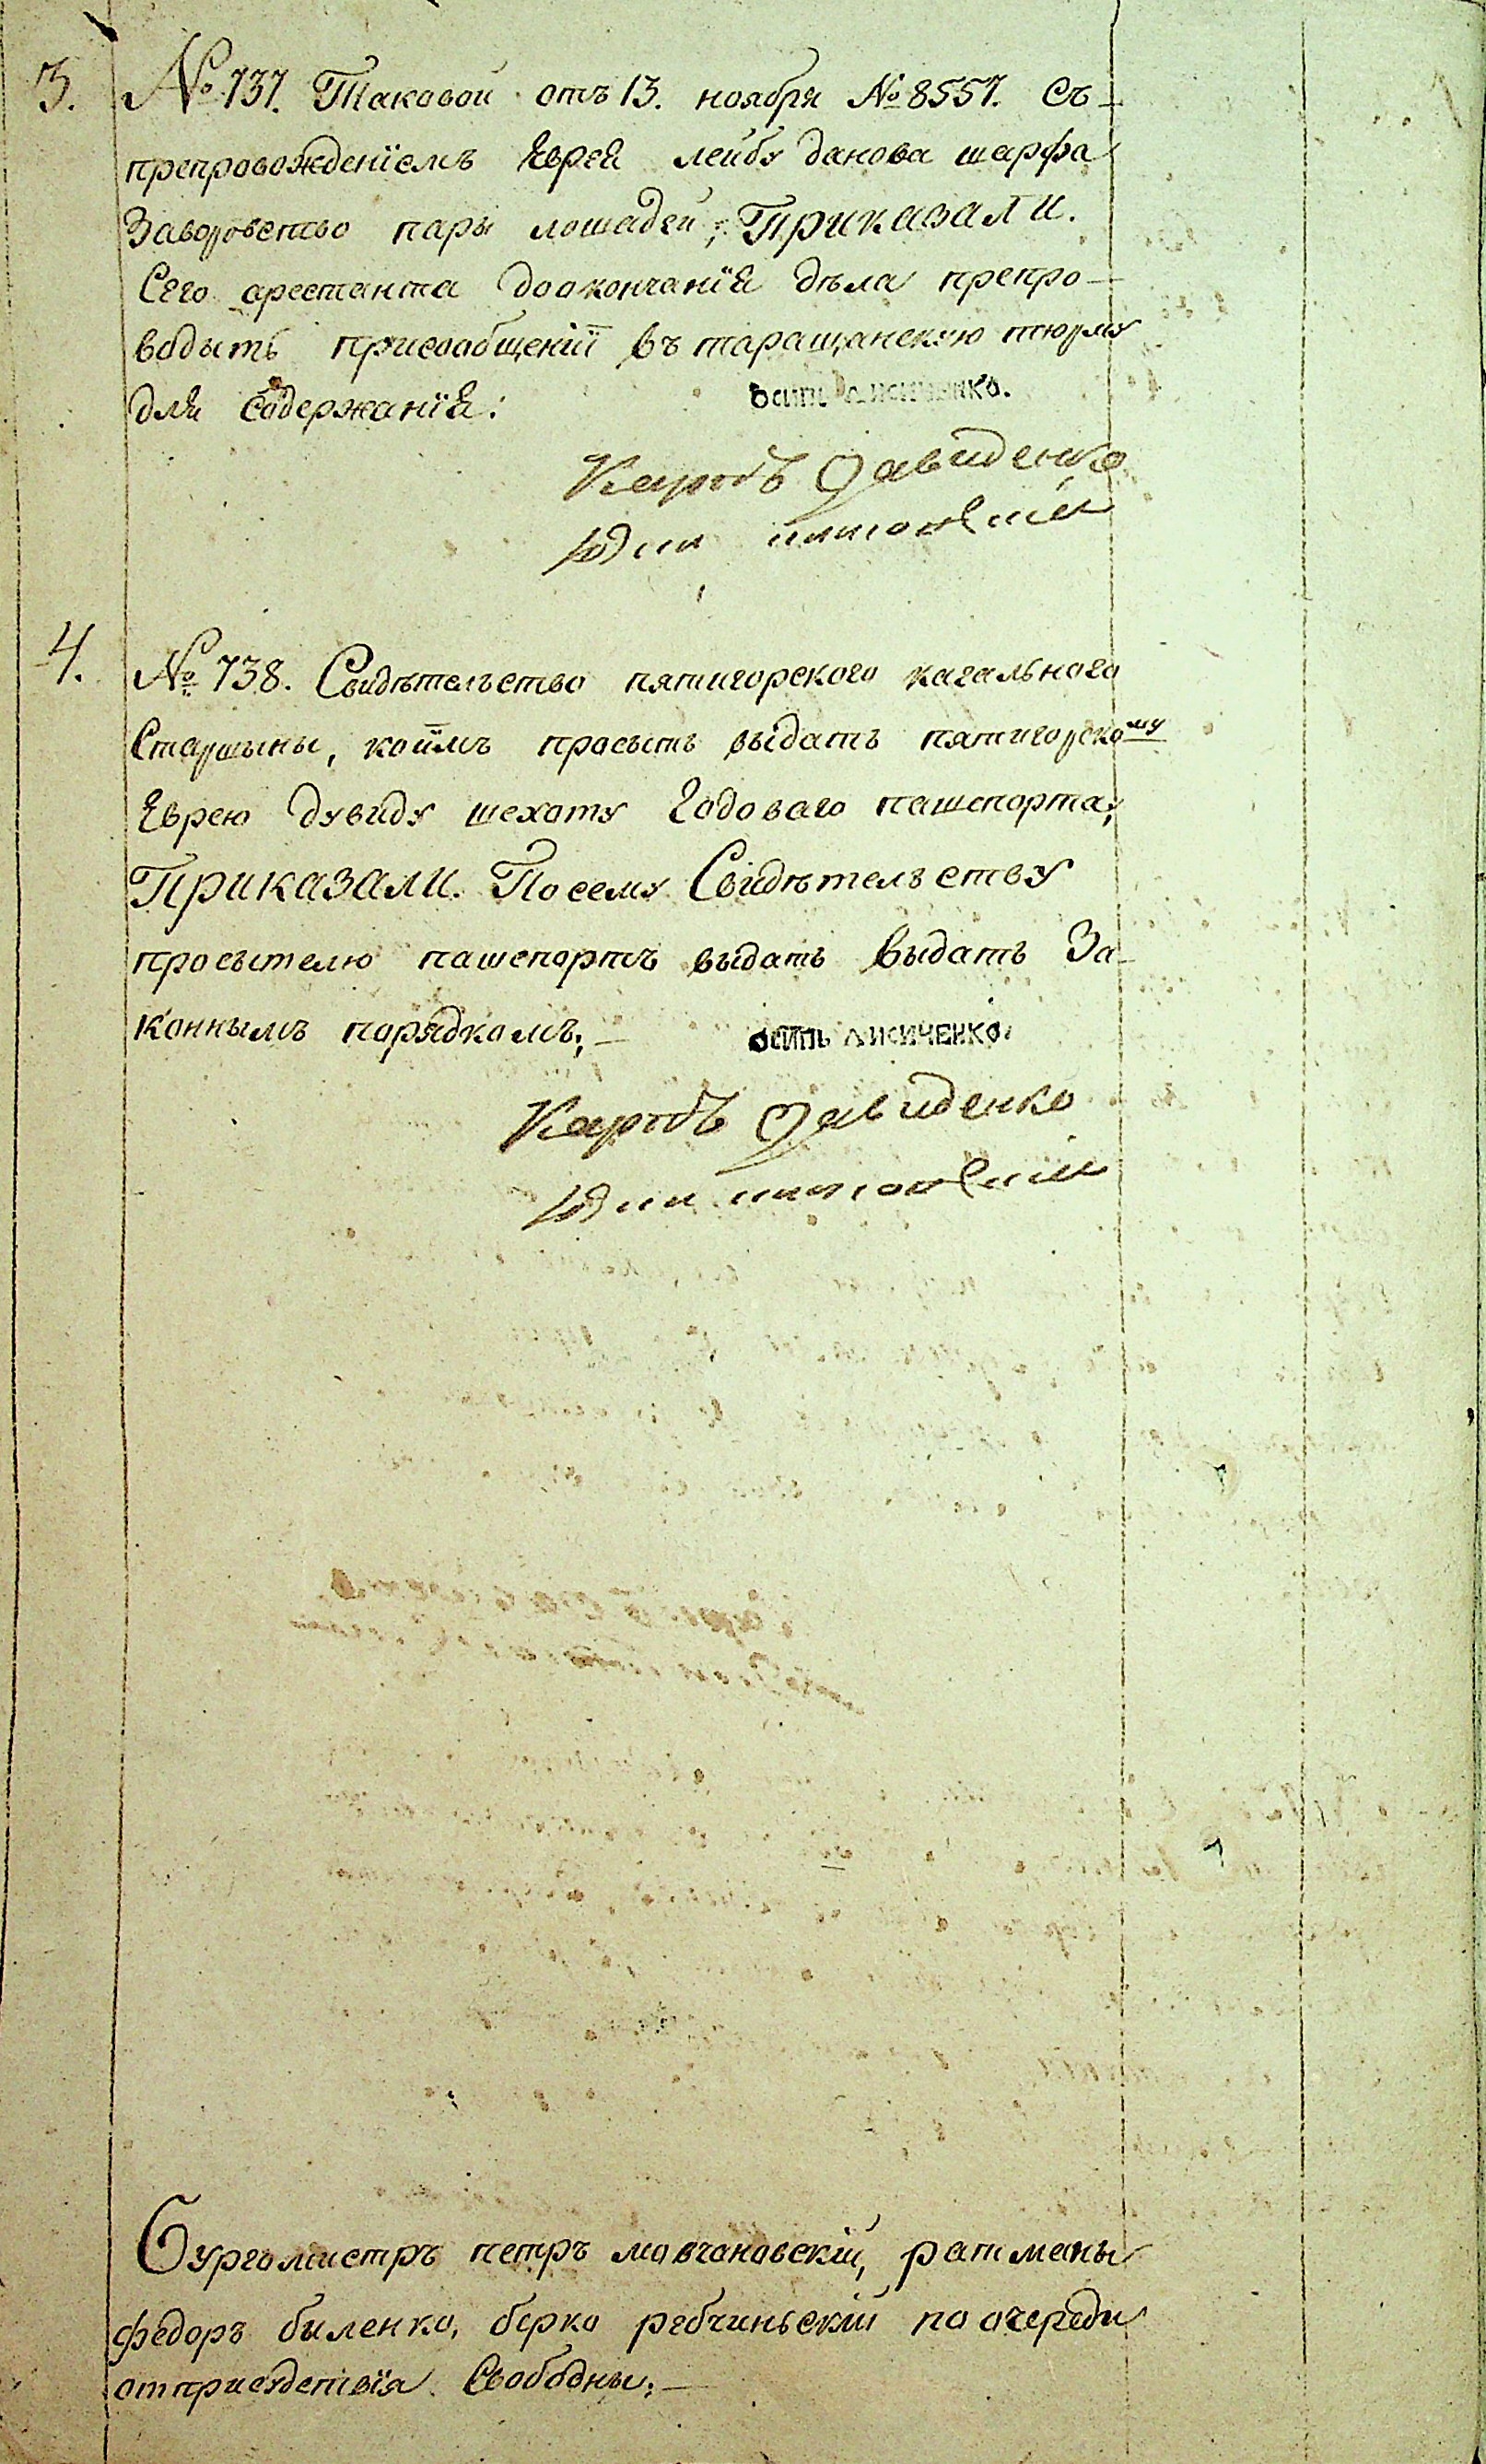 3. № 737. Таковой отъ 13. ноября № 8557. Съ-
препровожденіемъ Еврея лейбу данова шарфа
Заворовство пары лошадей; Приказали.
Сего арестанта доокончанїя дѣла препро-
водыть присообщеніи въ таращанскую тюрму
для содержанїя:
осипъ лисиченко.
Карпъ Давиденко
4. № 738. Свидѣтельство пятигорского кагального
Старшыны, коимъ просытъ выдать пятигорскому
Еврею дувиду шехоту Годоваго пашепорта;
Приказали. Посему Свидѣтельству
просытелю пашепортъ выдать выдать За-
коннымъ порядкомъ;-
осипъ лисиченко.
Карпъ Давиденко
Бургомистръ петръ мовчановскій, ратманы
федоръ биленко, берко рябчиньскій по очереди
отприсудствїя Свободны;-